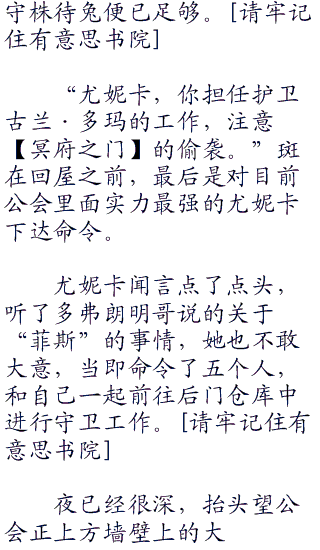 守株待兔便已足够。[请牢记
住有意思书院]
“尤妮卡，你担任护卫
古兰·多玛的工作，注意
【冥府之门】的偷袭。”斑
在回屋之前，最后是对目前
公会里面实力最强的尤妮卡
下达命令。
尤妮卡闻言点了点头，
听了多弗朗明哥说的关于
“菲斯”的事情，她也不敢
大意，当即命令了五个人，
和自己一起前往后门仓库中
进行守卫工作。[请牢记住有
意思书院]
夜已经很深，抬头望公
会正上方墙壁上的大